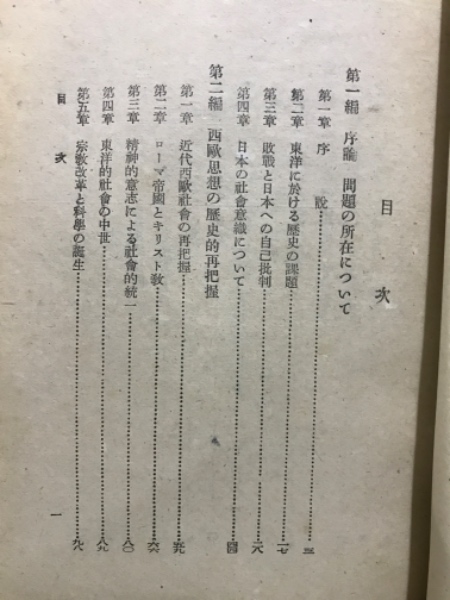 目次
第一編 序論 問題の所在について
第一章 序 説……三
第二章 東洋に於ける歴史の課題……一七
第三章 敗戰と日本への自己批判……二八
第四章 日本の社會意識について……四四
第二編 西歐思想の歴史的再把握
第一章 近代西歐社會の再把握……五九
第二章 ローマ帝國とキリスト教……六六
第三章 精神的意志による社會的統一……八〇
第四章 東洋的社會の中世……八九
第五章 宗教改革と科學の誕生……九八
目次
一